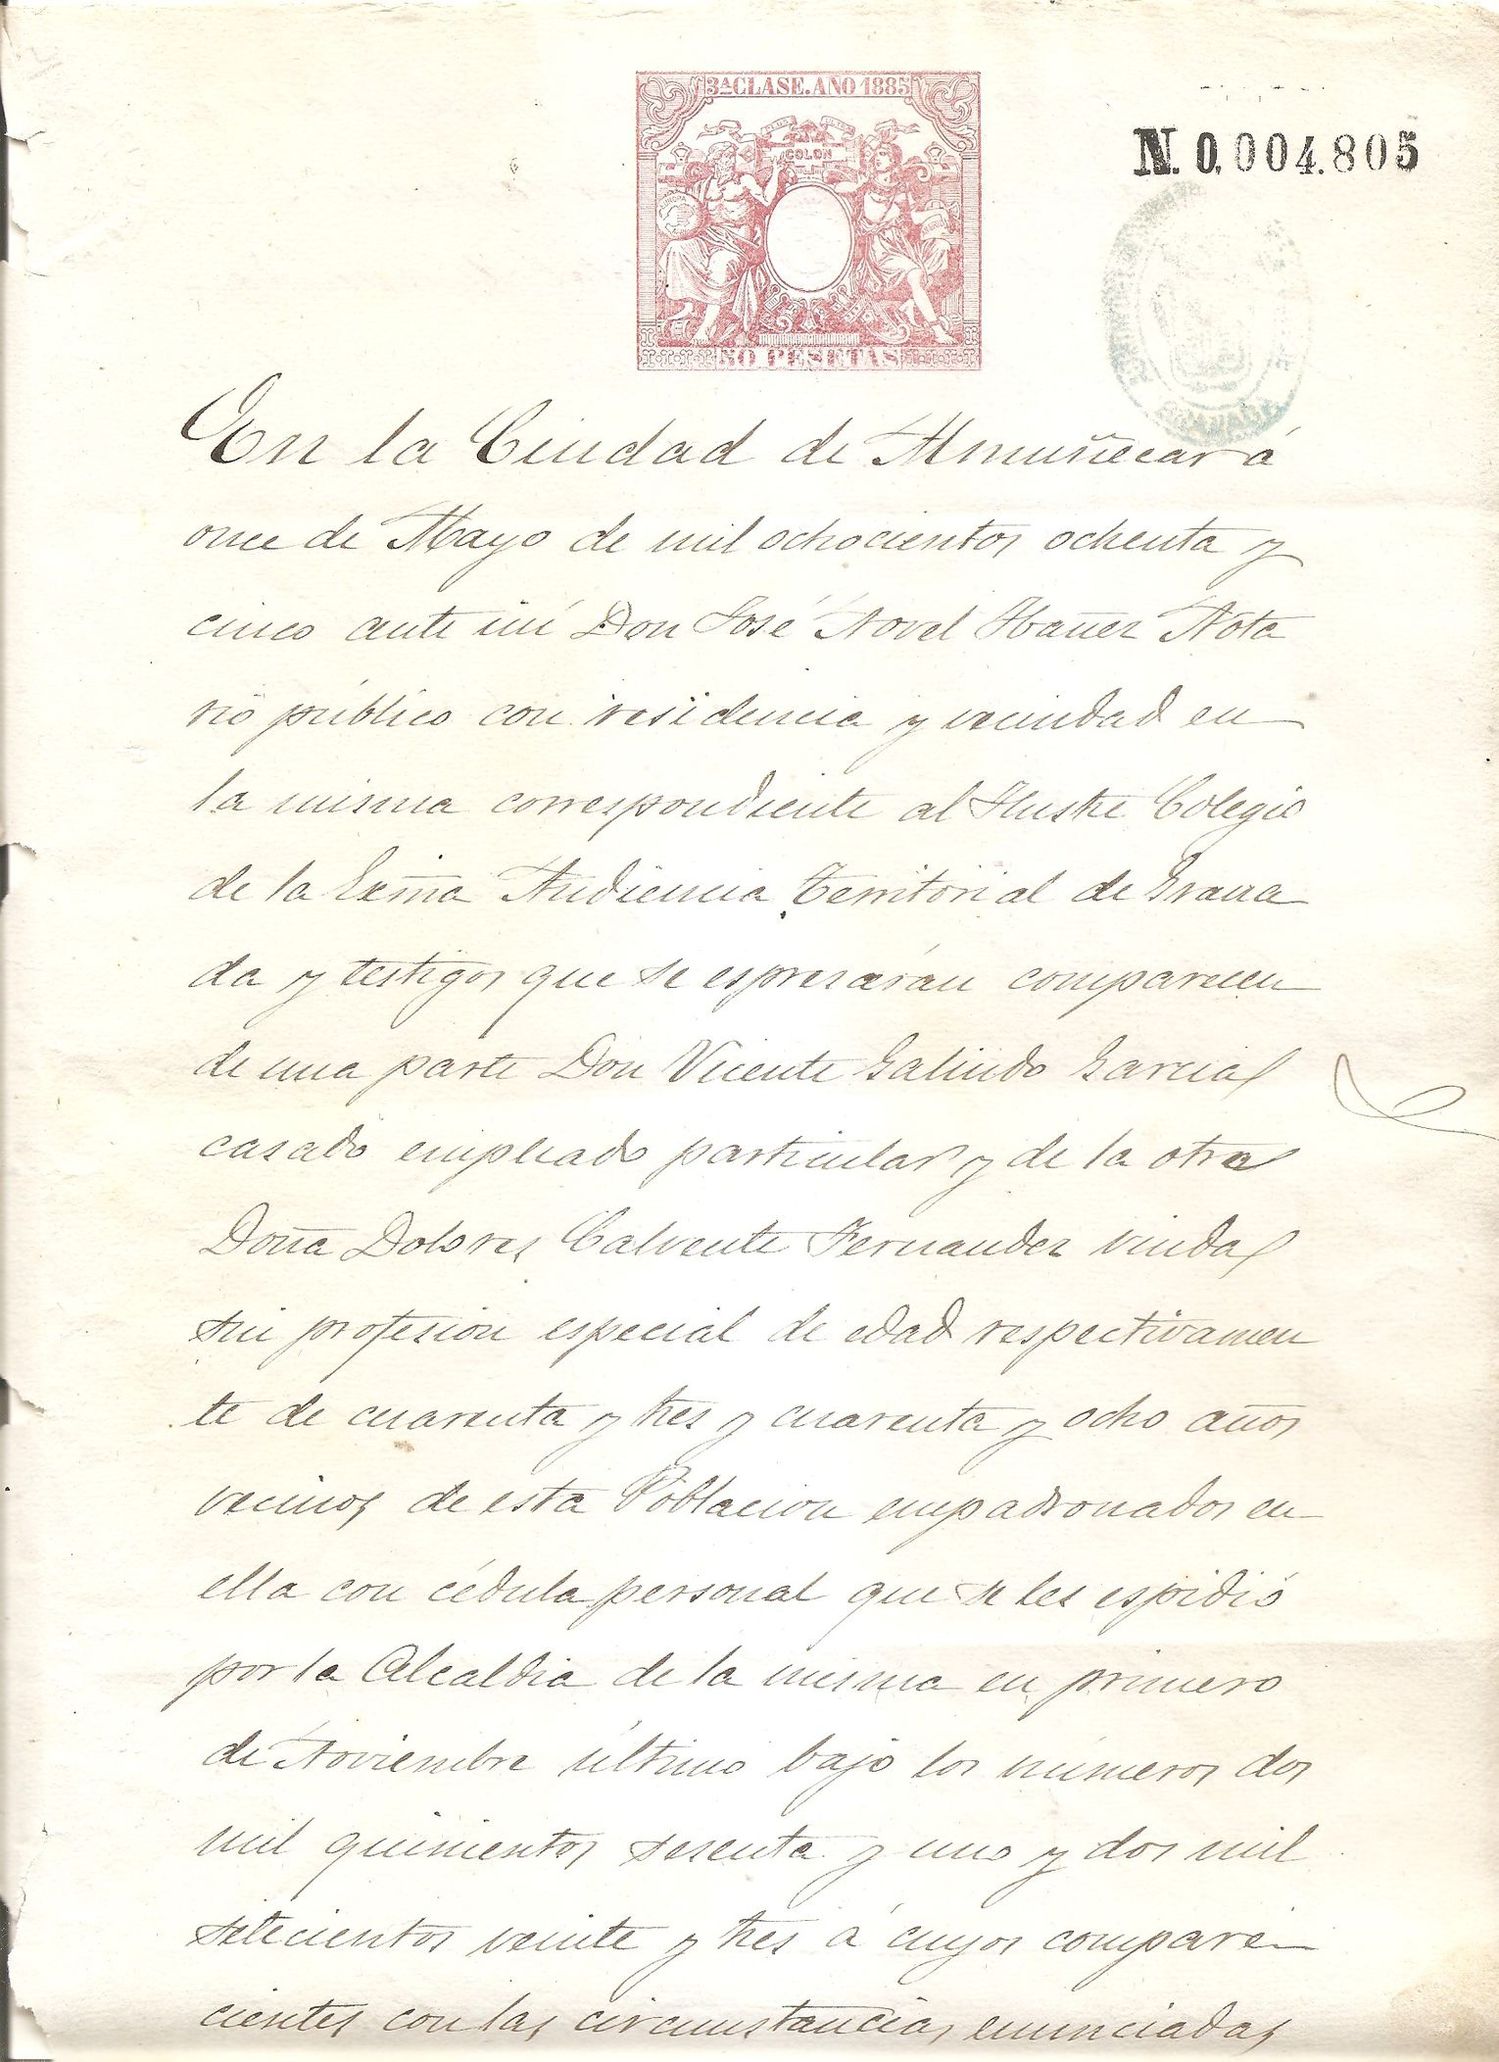 3ª CLASE. AÑO 1885
COLON
50 PESETAS
N. 0,004.805
GRANADA
En la Ciudad de Almuñecar á
once de Mayo de mil ochocientos ochenta y
cinco ante mí Don José Novel Ibañez Nota
rio público con residencia y vecindad en
la misma correspondiente al Ilustre Colegio
de la Exma Audiencia Territorial de Grana
da y testigos que se espresarán comparecen
de una parte Don Vicente Galindo Garcia
casado empleado particular y de la otra
Doña Dolores Calvente Fernandez viuda
sin profesion especial de edad respectivamen
te de cuarenta y tres y cuarenta y ocho años
vecinos de esta Poblacion empadronados en
ella con cédula personal que se les espidió
por la Alcaldia de la misma en primero
de Noviembre último bajo los números dos
mil quinientos sesenta y uno y dos mil
setecientos veinte y tres á cuyos compare
cientes con las circunstancias enunciadas